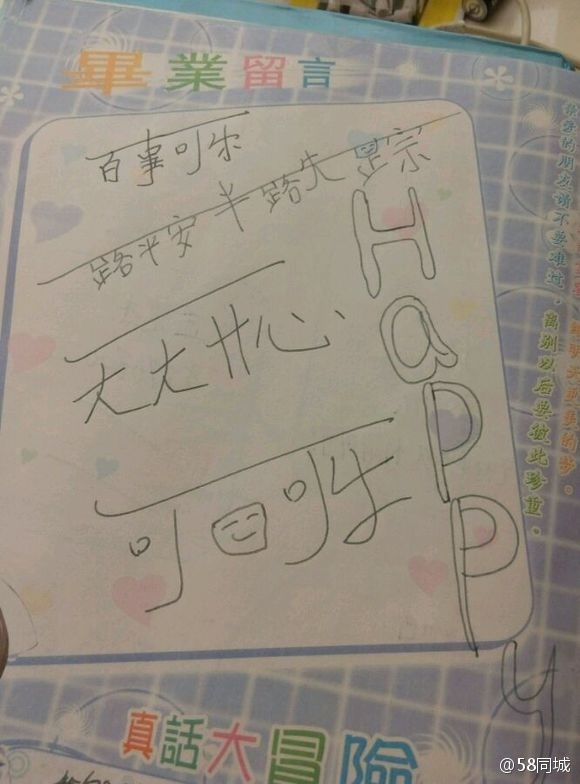 畢業留言
百事可乐
一路平安半路失踪
天天开心
可口可乐
HaPPy
的朋友请不要难过，离别以后要彼此珍重。
真話大冒險
@58同城